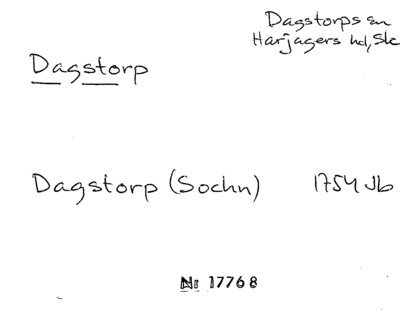 Dagstorps sn
Harjagers hd, Sk
Dagstorp
Dagstorp (Sochn) 1754 Jb
Nr 17768